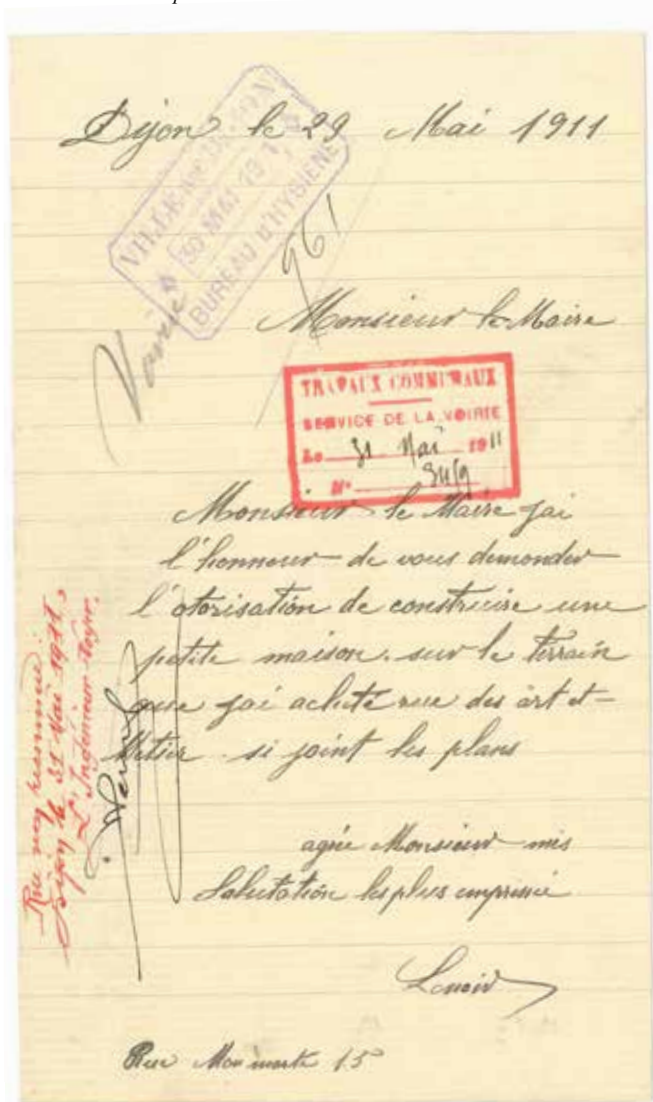 Dijon le 29 Mai 1911
VILLE DE DIJON
30 MAI 1911
BUREAU D'HYGIÈNE
961
Voirie
Monsieur le Maire
TRAVAUX COMMUNAUX
SERVICE DE LA VOIRIE
Le 31 Mai 1911
N°
Monsieur le Maire jai
l'honneur de vous demander
l'otorisation de construise une
petite maison. sur le terrain
que jai acheté rue des art et
Metier si joint les plans
agrée Monsieur mis
Salutation les plus empressé
Lenoir
Rue Monmarte 15
Rue non reconnue
Dijon le 31 Mai 1911,
L'Ingénieur Voyer.